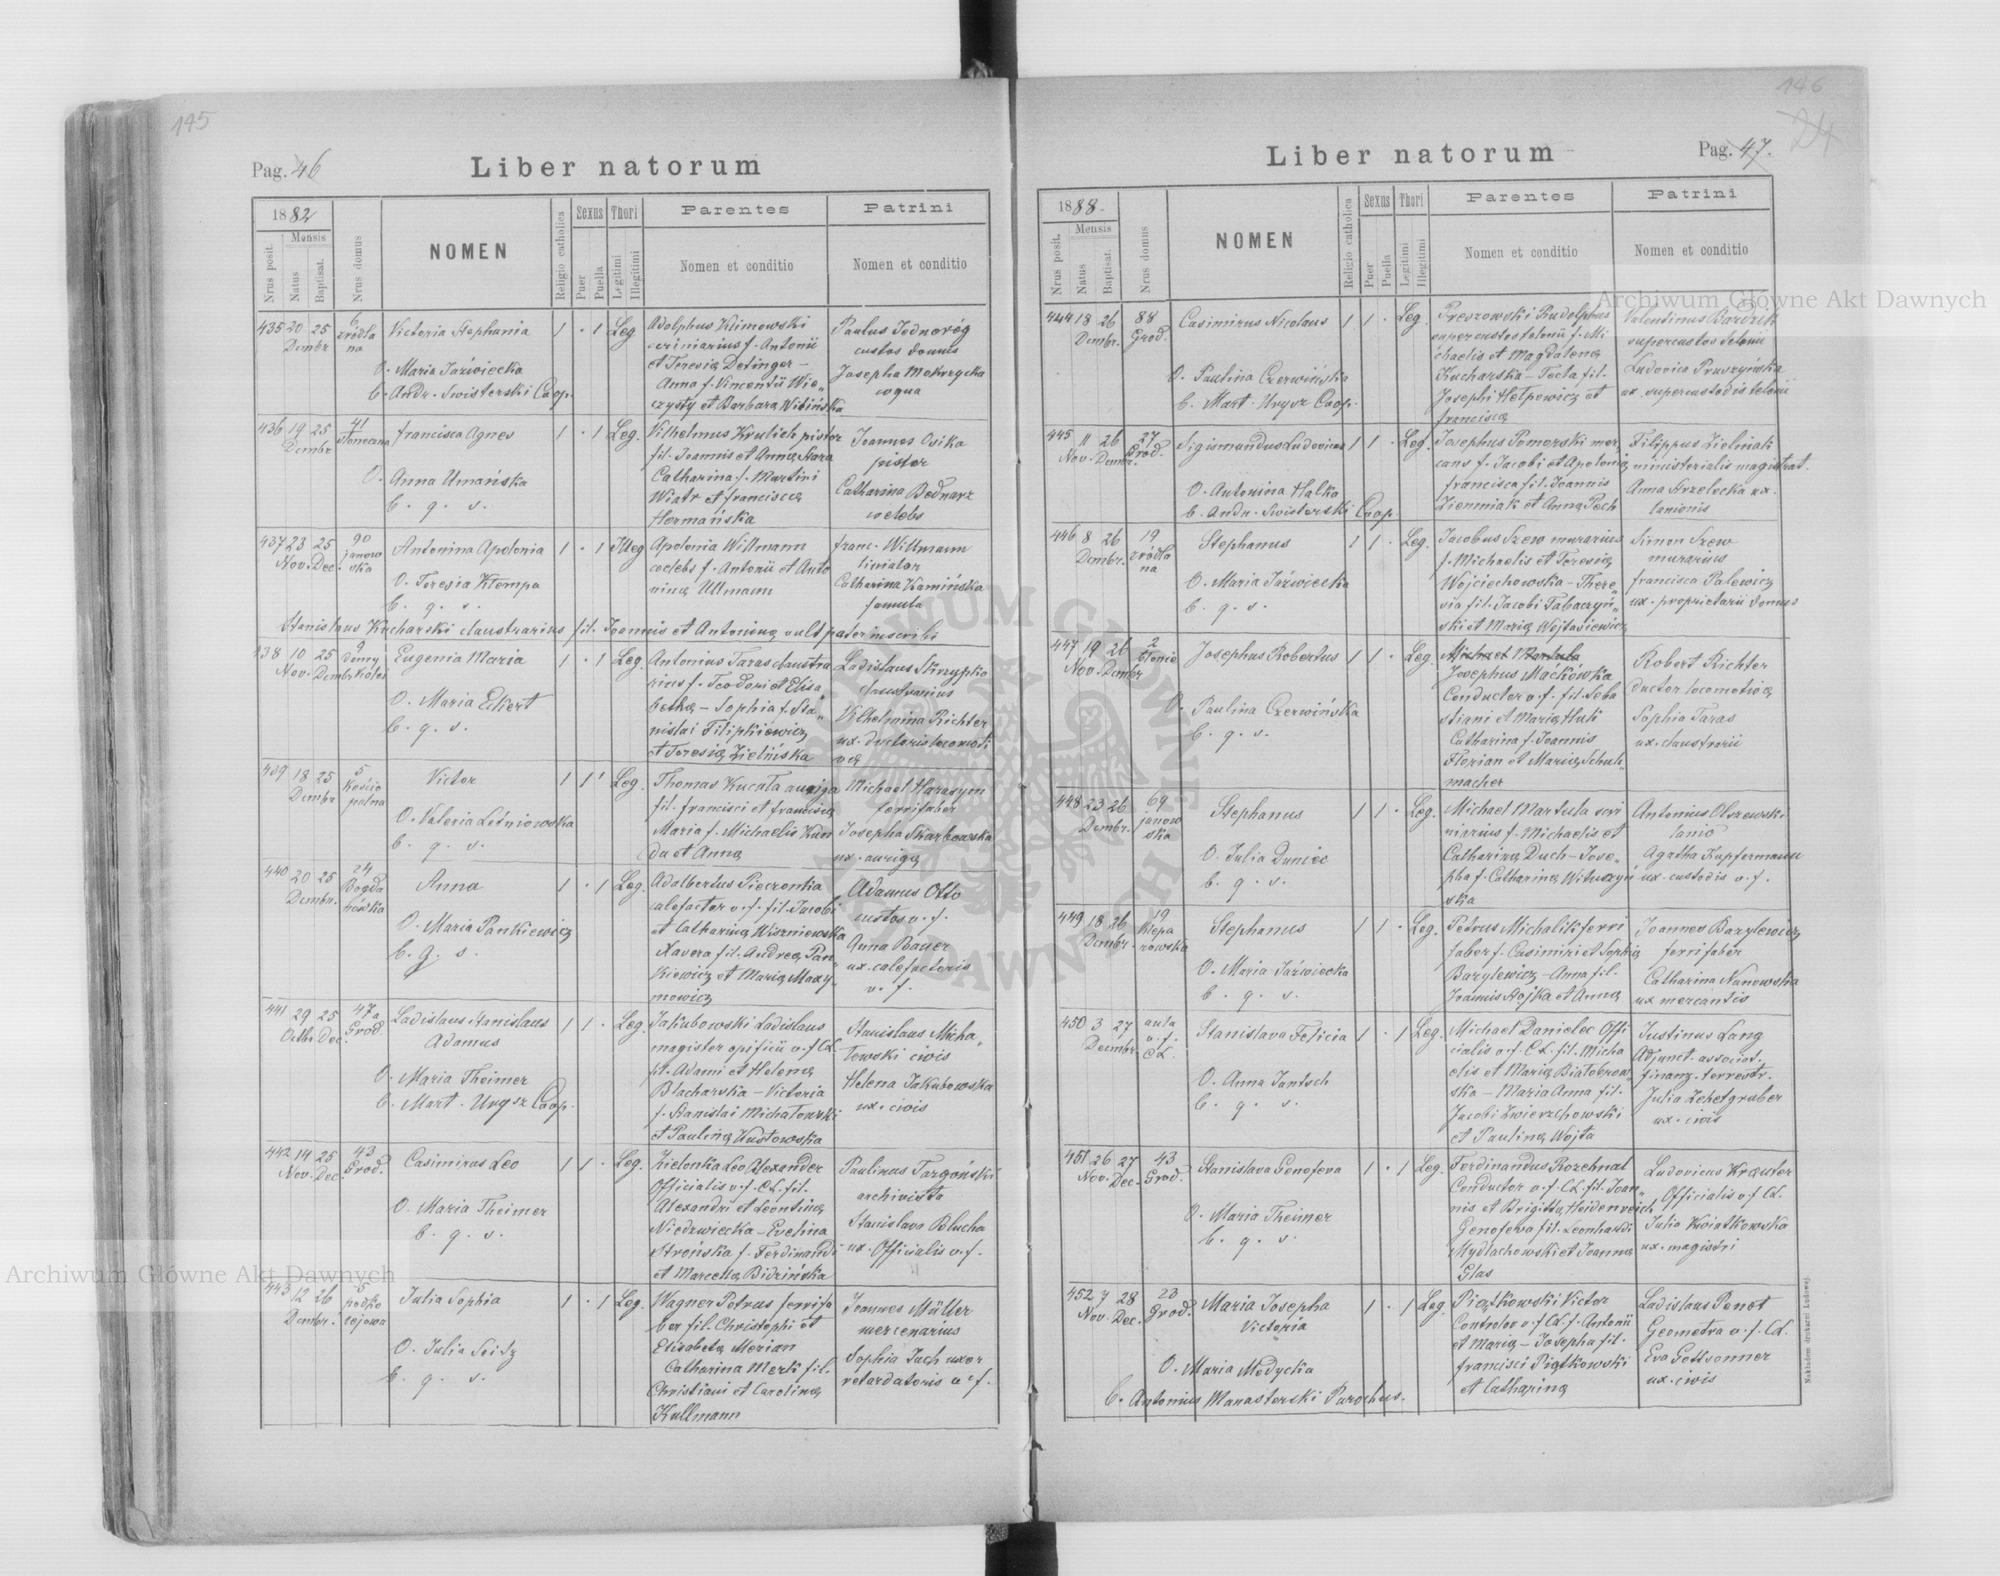 145
Pag. 46
Liber natorum
1882
Mensis
Nrus posit.
Natus
Baptisat.
Nrus domus
NOMEN
Religio catholica
Sexus
Puer
Puella
Thori
Legitimi
Illegitimi
Parentes
Nomen et conditio
Patrini
Nomen et conditio
435 20 25 Dembr
6 źródla na
Victoria Stephania
1 · 1 Leg
O. Maria Jaźwiecka
b. Andr. Swisterski Coop.
Adolphus Klimowski
scriniarius f. Antonii
et Teresia Detinger –
Anna f. Vincentii Wie„
czysty et Barbara Witińska
Paulus Jednoróg
custos domus
Josepha Mokrzycka
coqua
436 19 25 Dembr
41
Francisca Agnes
1 · 1 Leg.
O. Anna Umańska
b. q. s.
Vilhelmus Krulich pistor
fil. Joannis et Anna
Catharina f. Martini
Wiatr et Francisca
Hermańska
Joannes Osika
pistor
Catharina Bednarz
coelebs
437 23 25 Nov. Dec.
90 janow ska
Antonina Apolonia
1 · 1 Illeg
O. Teresia Klempa
b. q. s.
Apolonia Willmann
coelebs f. Antonii et Anto
nina Ullmann
Franc. Willmann
Catharina Kamińska
famula
Stanislaus Kucharski claustrarius fil. Joannis et Antonina vult pater inscribi
438 10 25 Nov. Dembr
9
Eugenia Maria
1 · 1 Leg.
O. Maria Eckert
b. q. s.
Antonius Taras claustra
rius f. Teodori et Elisa„
betha – Sophia f. Sta„
nislai Filipkiewicz
et Teresia Zielińska
Ladislaus Skrzypko
claustrarius
Vilhelmina Richter
ux. ductoris locomoti
va
439 18 25 Dembr
5
Victor
1 1 · Leg.
O. Valeria Leśniowska
b. q. s.
Thomas Kucała auriga
fil. Francisci et Francisca
Maria f. Michaelis Kun
da et Anna
Michael Harasym
ferrifaber
Josepha Skarbowska
ux. auriga
440 20 25 Dembr.
24 Bogda nówka
Anna
1 · 1 Leg.
O. Maria Pankiewicz
b. q. s.
Adalbertus Pieczonka
calefactor v. f. fil. Jacobi
et Catharina Wiszniewska
Xavera fil. Andrea Pan„
kiewicz et Maria Maxy„
mowicz
Adamus Otto
custos v. f.
Anna Bauer
ux. calefactoris
v. f.
441 29 25 Octbr Dec.
47a Grod.
Ladislaus Stanislaus
Adamus
1 1 · Leg.
O. Maria Theimer
b. Mart. Urysz Coop.
Jakubowski Ladislaus
magister opificii v. f. CL.
fil. Adami et Helena
Blacharska – Victoria
f. Stanislai Michałowski
et Paulina Kustowska
Stanislaus Micha„
łowski civis
Helena Jakubowska
ux. civis
442 14 25 Nov. Dec.
43 Grod.
Casimirus Leo
1 1 · Leg.
O. Maria Theimer
b. q. s.
Zielonka Leo Alexander
Officialis v. f. CL. fil.
Alexandri et Leontina
Niedzwiecka – Evelina
Strońska f. Ferdinandi
et Marcella Bidzińska
Paulinus Targoński
archivista
Stanislava Blucha
ux. Officialis v. f.
443 12 26 Dembr.
5
Julia Sophia
1 · 1 Leg.
O. Julia Seitz
b. q. s.
Wagner Petrus ferrifa
ber fil. Christophi et
Elisabeta Merian
Catharina Merk fil.
Christiani et Carolina
Kullmann
Joannes Müller
mercenarius
Sophia Jach uxor
retardatoris v. f.
146
24
Liber natorum
Pag. 47.
1888.
Mensis
Nrus posit.
Natus
Baptisat.
Nrus domus
NOMEN
Religio catholica
Sexus
Puer
Puella
Thori
Legitimi
Illegitimi
Parentes
Nomen et conditio
Patrini
Nomen et conditio
444 18 26 Dembr.
88 Grod.
Casimirus Nicolaus
1 1 · Leg.
O. Paulina Czerwińska
b. Mart. Urysz Coop.
Preszowski Rudolphus
supercustos telonii f. Mi
chaelis et Magdalena
Kucharska – Tecla fil.
Josephi Hełpowicz et
Francisca
Valentinus Bardzik
supercustos telonii
Ludovica Pruszyńska
ux. supercustodis telonii
445 11 26 Nov. Dembr.
27 Grod.
Sigismundus Ludovicus
1 1 · Leg.
O. Antonina Halka
b. Andr. Swisterski Coop
Josephus Pomorski mer„
cans f. Jacobi et Apolonia
Francisca fil. Joannis
Ziemniak et Anna Pech
Filippus Zielniak
ministerialis magistrat.
Anna Strzelecka ux.
lanionis
446 8 26 Dembr.
19 źródla na
Stephanus
1 1 · Leg.
O. Maria Jaźwiecka
b. q. s.
Jacobus Szew murarius
f. Michaelis et Teresia
Wojciechowska – There„
sia fil. Jacobi Tabaczyń„
ski et Maria Wojtasiewicz
Simon Szew
murarius
Francisca Palewicz
ux. proprietarii domus
447 19 26 Nov. Dembr
2 błonie
Josephus Robertus
1 1 · Leg.
O. Paulina Czerwińska
b. q. s.
Michael Martula
Josephus Maćkówka
Conductor v. f. fil. Seba
stiani et Maria Huk
Catharina f. Joannis
Florian et Maria Schuh„
macher
Robert Richter
ductor locomotiva
Sophia Taras
ux. claustrarii
448 23 26 Dembr.
69 janow ska
Stephanus
1 1 · Leg.
O. Julia Duniec
b. q. s.
Michael Martula scri
niarius f. Michaelis et
Catharina Duch – Jose„
pha f. Catharina Wituszyń
ska
Antonius Olszewski
lanio
Agatha Kupfermann
ux. custodis v. f.
449 18 26 Dembr.
19 Klepa rowska
Stephanus
1 1 · Leg.
O. Maria Jaźwiecka
b. q. s.
Petrus Michalik ferri
faber f. Casimiri et Sophia
Barylewicz – Anna fil.
Joannis Stojka et Anna
Joannes Barylewicz
ferrifaber
Catharina Nanowska
ux mercantis
450 3 27 Decembr.
aula v. f. CL.
Stanislava Felicia
1 · 1 Leg.
O. Anna Jantsch
b. q. s.
Michael Danielec Offi
cialis v. f. CL. fil. Micha
elis et Maria Białobrow„
ska – Maria Anna fil.
Jacobi Zwierzchowski
et Paulina Wojta
Justinus Lang
Adjunct. associat.
finanz. terrestr.
Julia Lehetgruber
ux. civis
451 26 27 Nov. Dec.
43 Grod.
Stanislava Genofeva
1 · 1 Leg.
O. Maria Theimer
b. q. s.
Ferdinandus Rozehnal
Conductor v. f. CL. fil. Joan„
nis et Brigitta Heidenreich
Genofeva fil. Leonhardi
Mydlachowski et Joanna
Glas
Ludovicus Kraeuter
Officialis v. f. CL.
Julia Kwiatkowska
ux. magistri
452 7 28 Nov. Dec.
23 Grod.
Maria Josepha
Victoria
1 · 1 Leg
O. Maria Medycka
b. Antonius Manasterski Parochus.
Piątkowski Victor
Controlor v. f. CL. f. Antonii
et Maria – Josepha fil.
Francisci Piątkowski
et Catharina
Ladislaus Penot
Geometra v. f. CL.
Eva Gottsonner
ux. civis
Archiwum Główne Akt Dawnych
Archiwum Główne Akt Dawnych
ARCHIWUM GŁÓWNE AKT DAWNYCH